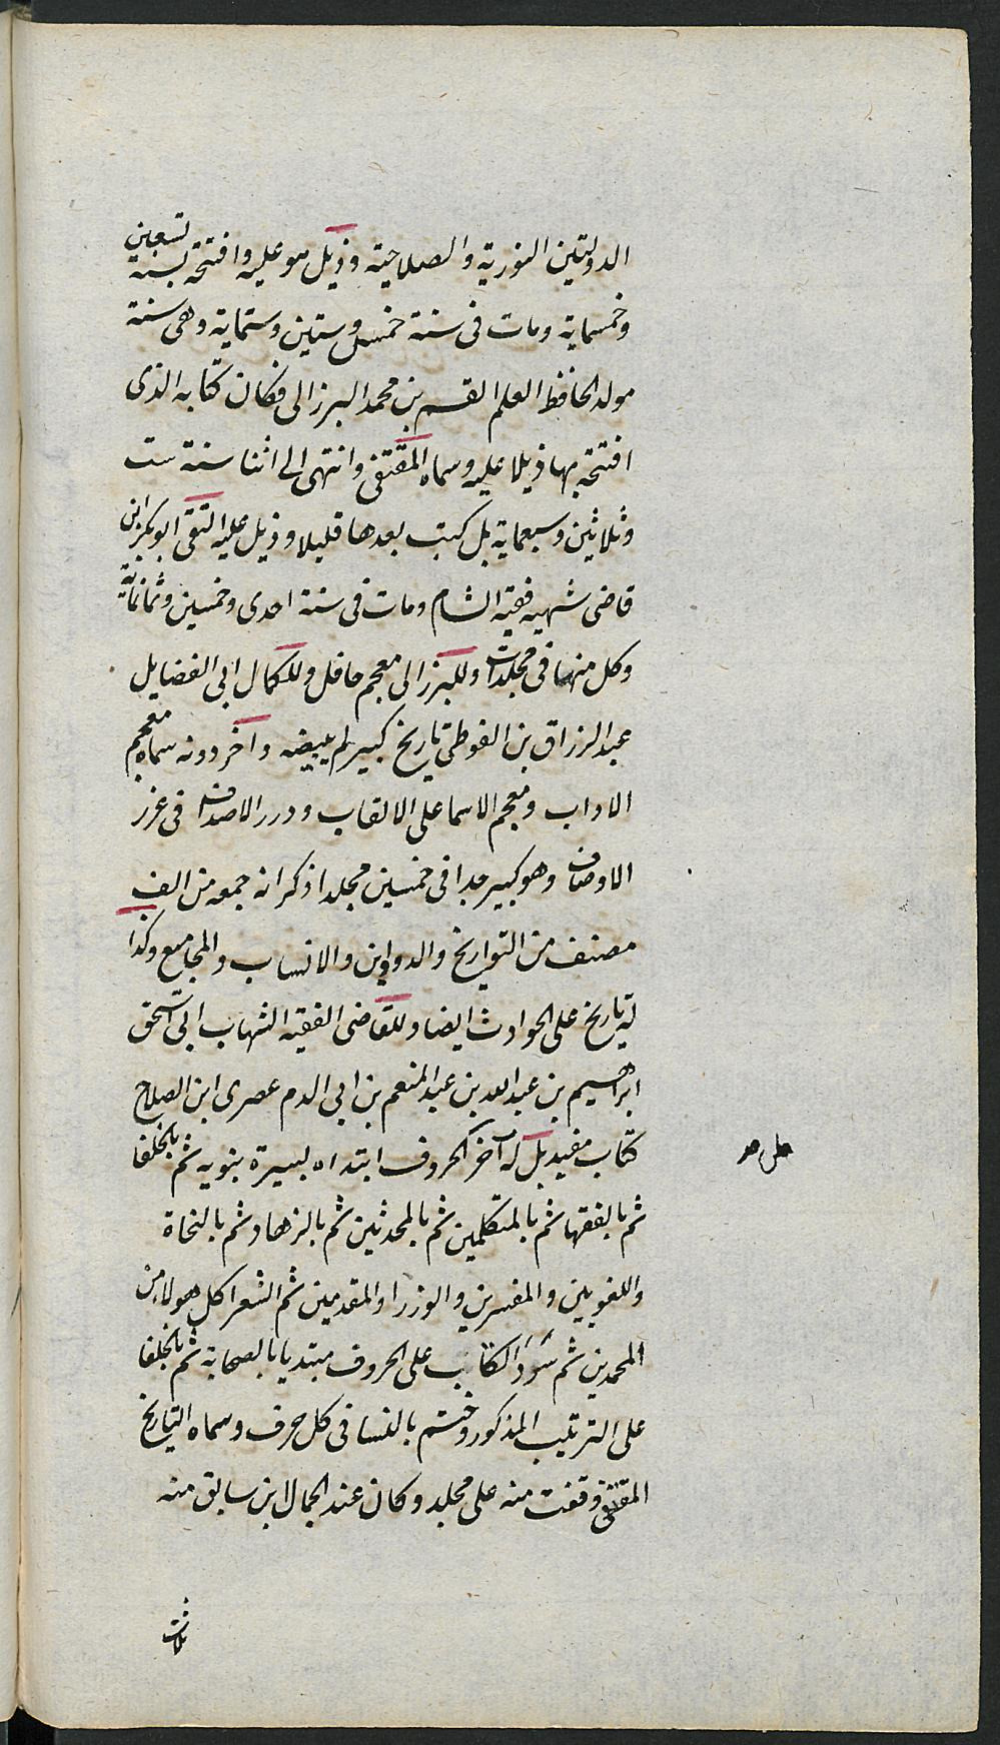 الدولتين النورية والصلاحية وذيل هو عليه وافتتحه بسنة تسعين
وخمسماية ومات في سنة خمس وستين وستماية وهي سنة
مولد الحافظ العلم القسم بن محمد البرزالي فكان كتابه الذي
افتتحه بها ذيلا عليه وسماه المقتفى وانتهى الى اثنا سنة ست
وثلاثين وسبعماية بل كتب بعدها قليلا وذيل عليه التقي ابو بكر ابن
قاضي شهبه فقيه الشام ومات في سنة احدى وخمسين وثمانماية
وكل منها في مجلدات وللبرزالي معجم حافل وللكمال ابي الفضايل
عبد الرزاق بن الفوطي تاريخ كبير لم يبيضه واخر دونه سماه معجم
الاداب ومعجم الاسما على الالقاب ودرر الاصداف في غرر
الاوصاف وهو كبير جدا في خمسين مجلدا ذكر انه جمعه من الف
مصنف من التواريخ والدواوين والانساب والمجاميع وكذا
له تاريخ على الحوادث ايضا وللقاضي الفقيه الشهاب ابي اسحق
ابراهيم بن عبد الله بن عبد المنعم بن ابي الدم عصري ابن الصلاح
كتاب مفيد بل له آخر الحروف ابتداه بسيرة نبويه ثم بالخلفا
ثم بالفقها ثم بالمتكلمين ثم بالمحدثين ثم بالزهاد ثم بالنحاة
واللغويين والمفسرين والوزرا والمقدمين ثم الشعرا كل هولاء من
المحمدين ثم سرد الكتاب على الحروف مبتديا بالصحابة ثم بالخلفا
على الترتيب المذكور وختم بالنسا في كل حرف وسماه التاريخ
المقفى وقفت منه على مجلد وكان عند الجمال ابن سابق منه
ثلاث